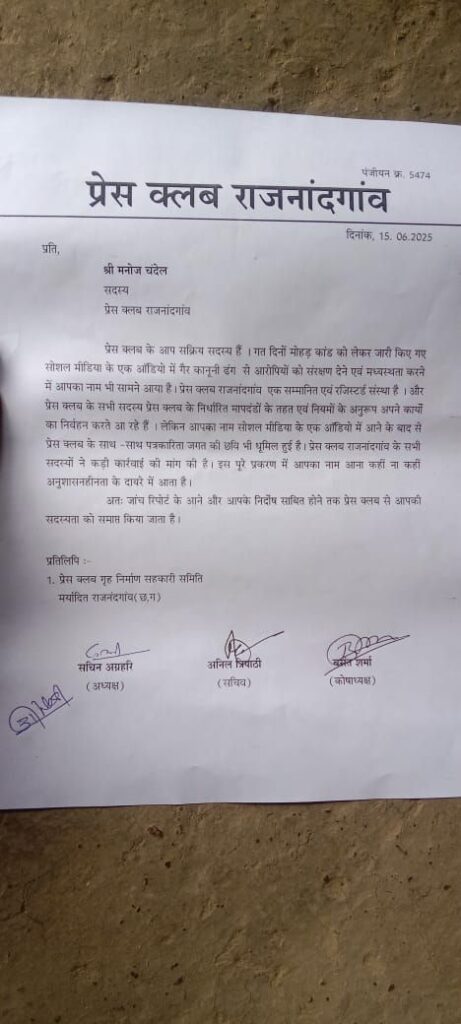 पंजीयन क्र. 5474
प्रेस क्लब राजनांदगांव
दिनांक, 15. 06.2025
प्रति,
श्री मनोज चंदेल
सदस्य
प्रेस क्लब राजनांदगांव
प्रेस क्लब के आप सक्रिय सदस्य हैं । गत दिनों मोहड़ कांड को लेकर जारी किए गए
सोशल मीडिया के एक ऑडियो में गैर कानूनी ढंग से आरोपियों को संरक्षण देने एवं मध्यस्थता करने
में आपका नाम भी सामने आया है। प्रेस क्लब राजनांदगांव एक सम्मानित एवं रजिस्टर्ड संस्था है । और
प्रेस क्लब के सभी सदस्य प्रेस क्लब के निर्धारित मापदंडों के तहत एवं नियमों के अनुरूप अपने कार्यों
का निर्वहन करते आ रहे हैं । लेकिन आपका नाम सोशल मीडिया के एक ऑडियो में आने के बाद से
प्रेस क्लब के साथ -साथ पत्रकारिता जगत की छवि भी धूमिल हुई है। प्रेस क्लब राजनांदगांव के सभी
सदस्यों ने कड़ी कार्रवाई की मांग की है। इस पूरे प्रकरण में आपका नाम आना कहीं ना कहीं
अनुशासनहीनता के दायरे में आता है।
अतः जांच रिपोर्ट के आने और आपके निर्दोष साबित होने तक प्रेस क्लब से आपकी
सदस्यता को समाप्त किया जाता है।
प्रतिलिपि :-
1. प्रेस क्लब गृह निर्माण सहकारी समिति
मर्यादित राजनंदगांव(छ.ग)
सचिन अग्रहरि अनिल त्रिपाठी बसंत शर्मा
(अध्यक्ष) (सचिव) (कोषाध्यक्ष)